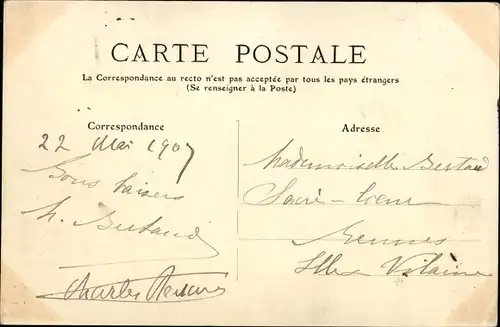 CARTE POSTALE
La Correspondance au recto n'est pas acceptée par tous les pays étrangers
(Se renseigner à la Poste)
Correspondance
Adresse
22 Mai 1907
Bons baisers
Mademoiselle Bertaud
Sacré-Cœur
Rennes
Ille & Vilaine
Charles